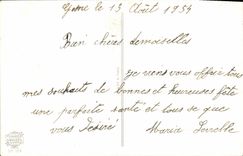 le 13 Août 1934
Bien chères demoiselles
Je viens vous offrir tous
mes souhaits de bonnes et heureuses fête
une parfaite santé et tous se que
vous Désiré Maria